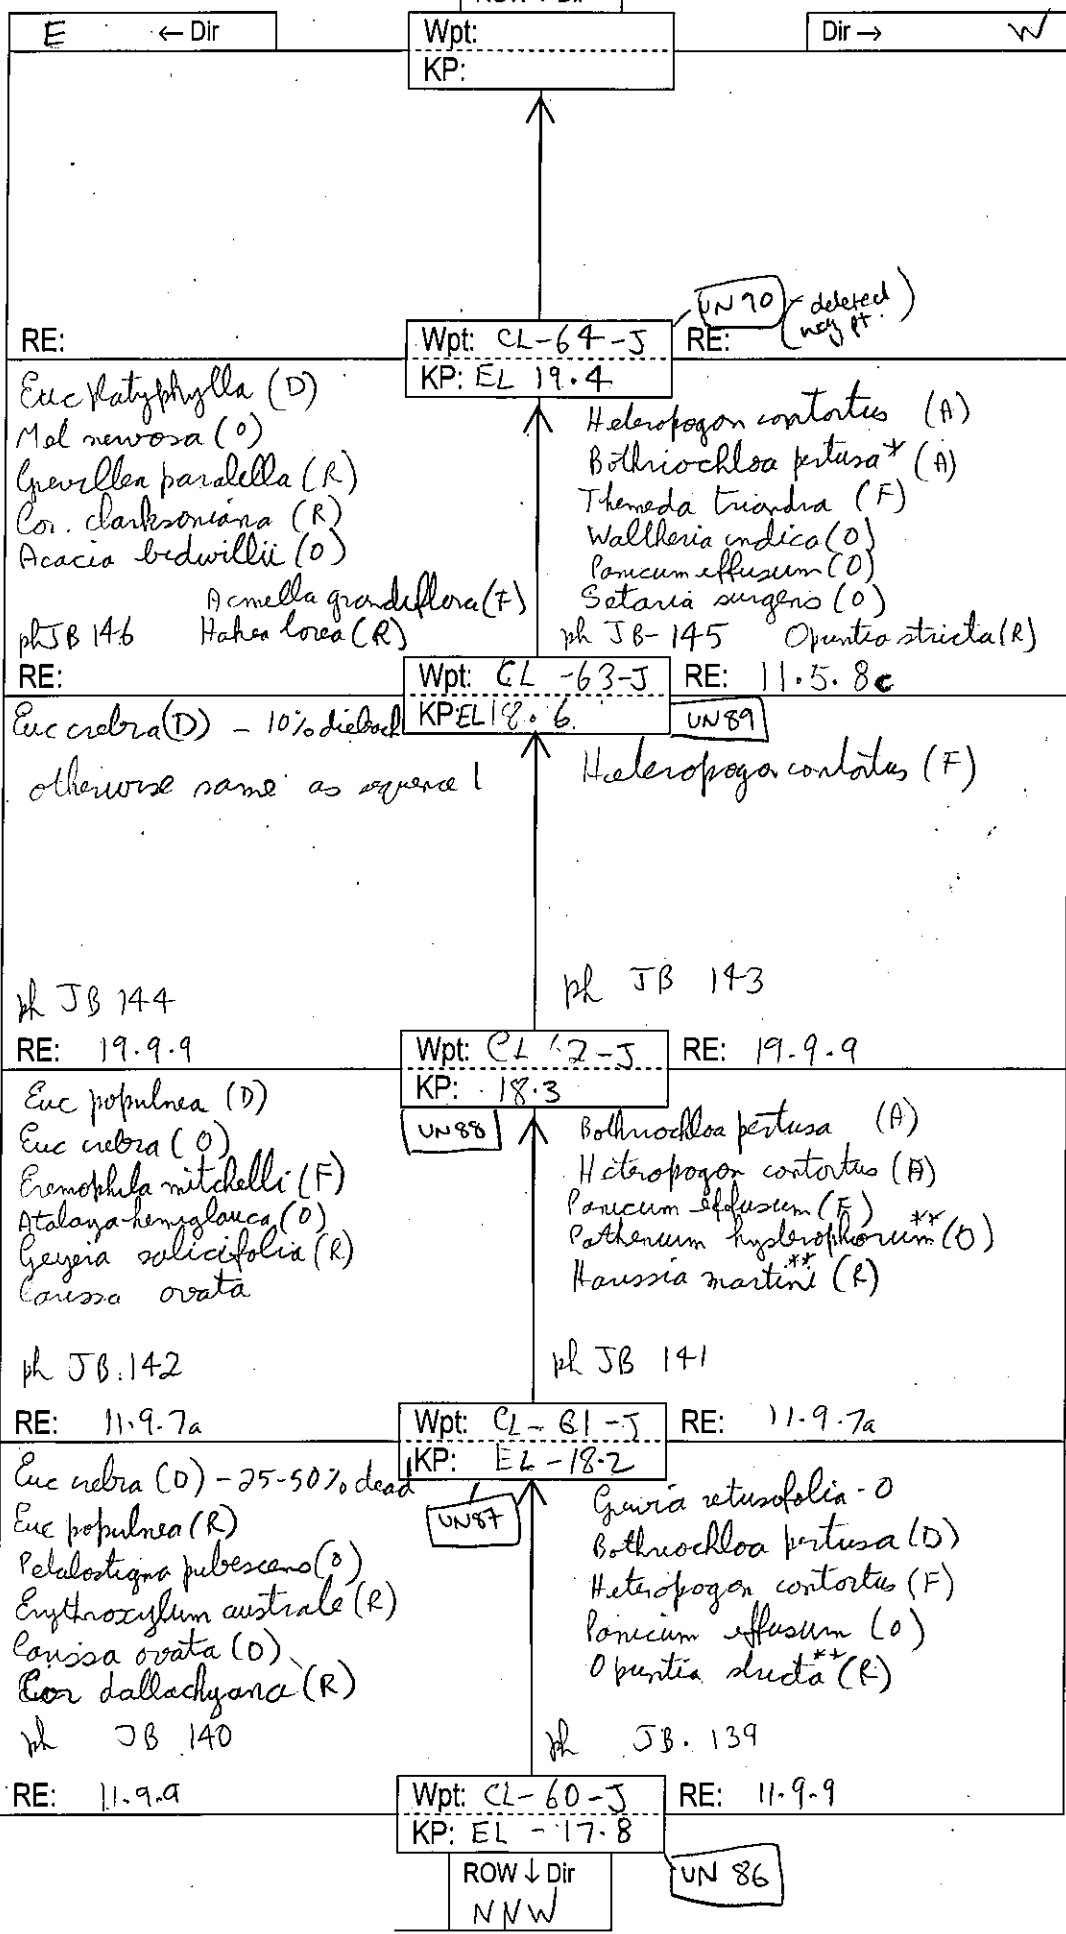 ROW ↓ Dir
E ← Dir
Wpt:
KP:
Dir → W
UN 90 (deleted way pt.)
RE:
Wpt: CL-64-J
KP: EL 19.4
RE:
Euc platyphylla (D)
Mel nervosa (O)
Grevillea paralella (R)
Cor. clarksoniana (R)
Acacia bidwillii (O)
Acmella grandiflora (F)
ph JB 146 Hakea lorea (R)
Heteropogon contortus (A)
Bothriochloa pertusa* (A)
Themeda triandra (F)
Waltheria indica (O)
Panicum effusum (O)
Setaria surgens (O)
ph JB-145 Opuntia stricta (R)
RE:
Wpt: CL-63-J
KP: EL 18.6
RE: 11.5.8c
UN89
Euc crebra (D) - 10% dieback
otherwise same as square 1
Heteropogon contortus (F)
ph JB 144
ph JB 143
RE: 19.9.9
Wpt: CL 62-J
KP: 18.3
RE: 19.9.9
UN88
Euc populnea (D)
Euc crebra (O)
Eremophila mitchelli (F)
Atalaya hemiglauca (O)
Geyeria salicifolia (R)
Carissa ovata
ph JB.142
Bothriochloa pertusa (A)
Heteropogon contortus (A)
Panicum effusum (F)
Pathenium hysterophorum** (O)
Harissia martini** (R)
ph JB 141
RE: 11.9.7a
Wpt: CL-61-J
KP: EL-18.2
RE: 11.9.7a
UN87
Euc crebra (D) - 25-50% dead
Euc populnea (R)
Petalostigma pubescens (O)
Erythroxylum australe (R)
Carissa ovata (O)
Cor dallachyana (R)
ph JB 140
Grewia retusofolia - O
Bothriochloa pertusa (D)
Heteropogon contortus (F)
Panicum effusum (O)
Opuntia stricta** (R)
ph JB. 139
RE: 11.9.9
Wpt: CL-60-J
KP: EL - 17.8
RE: 11.9.9
UN 86
ROW ↓ Dir
NNW